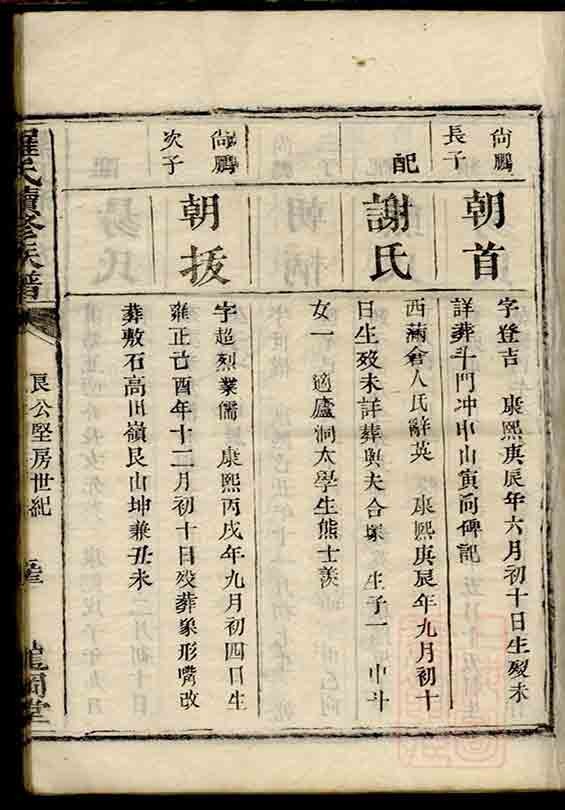 尙鵬
長子
朝首
字登吉 康熙庚辰年六月初十日生歿未
詳葬斗門冲申山寅向碑記
配
謝氏
西蒲會人氏辭英 康熙庚辰年九月初十
日生歿未詳葬與夫合塚 生子一 中斗
女一 適廬洞太學生熊士羨
尙鵬
次子
朝拔
字超烈業儒 康熙丙戌年九月初四日生
雍正己酉年十二月初十日歿葬象形嘴改
葬敷石高田嶺艮山坤兼丑未
羅氏續修族譜
良公堅房世紀